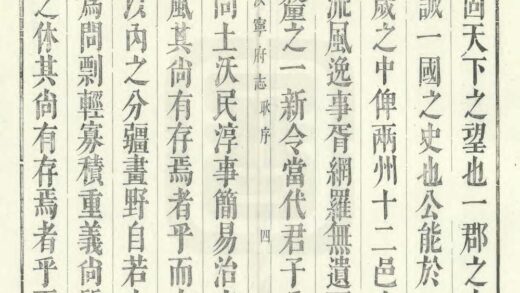 天下之望也一郡之
誠一國之史也公能於
歲之中俾兩州十二邑
流風逸事胥網羅無遺
釐之一新令當代君子
寧府志
序
四
土沃民淳事簡易治
風其尚有存焉者乎而
內之分疆畫野自若
爲問剽輕寡積重義尚
之体其尚有存焉者乎